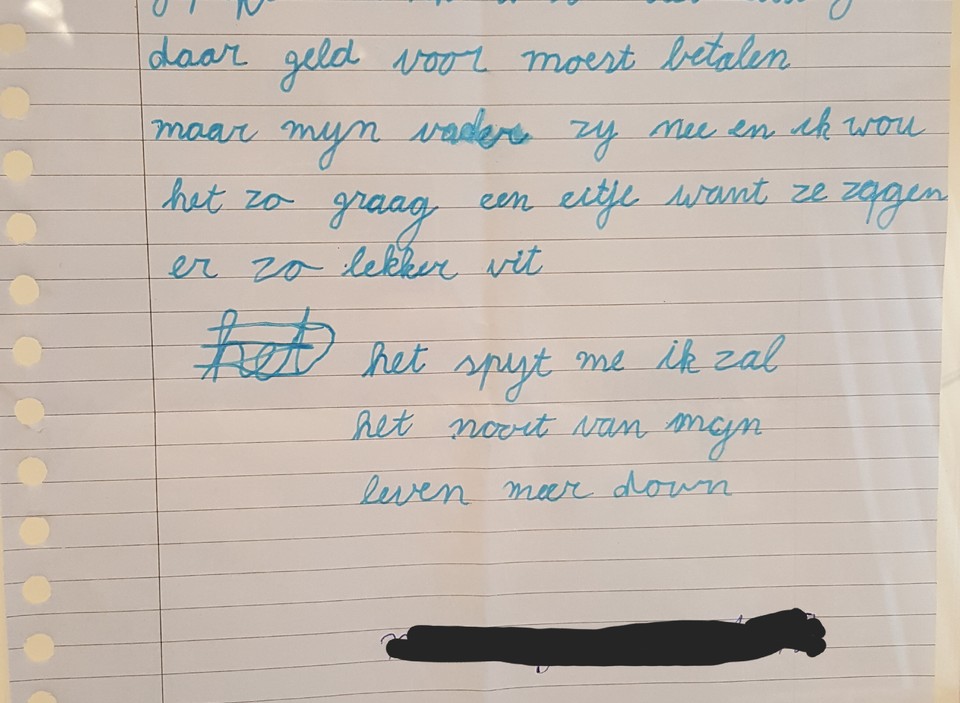 daar geld voor moest betalen
maar myn vader zy nee en ik wou
het zo graag een eitje want ze zagen
er zo lekker uit
het het spyt me ik zal
het nooit van myn
leven meer doen